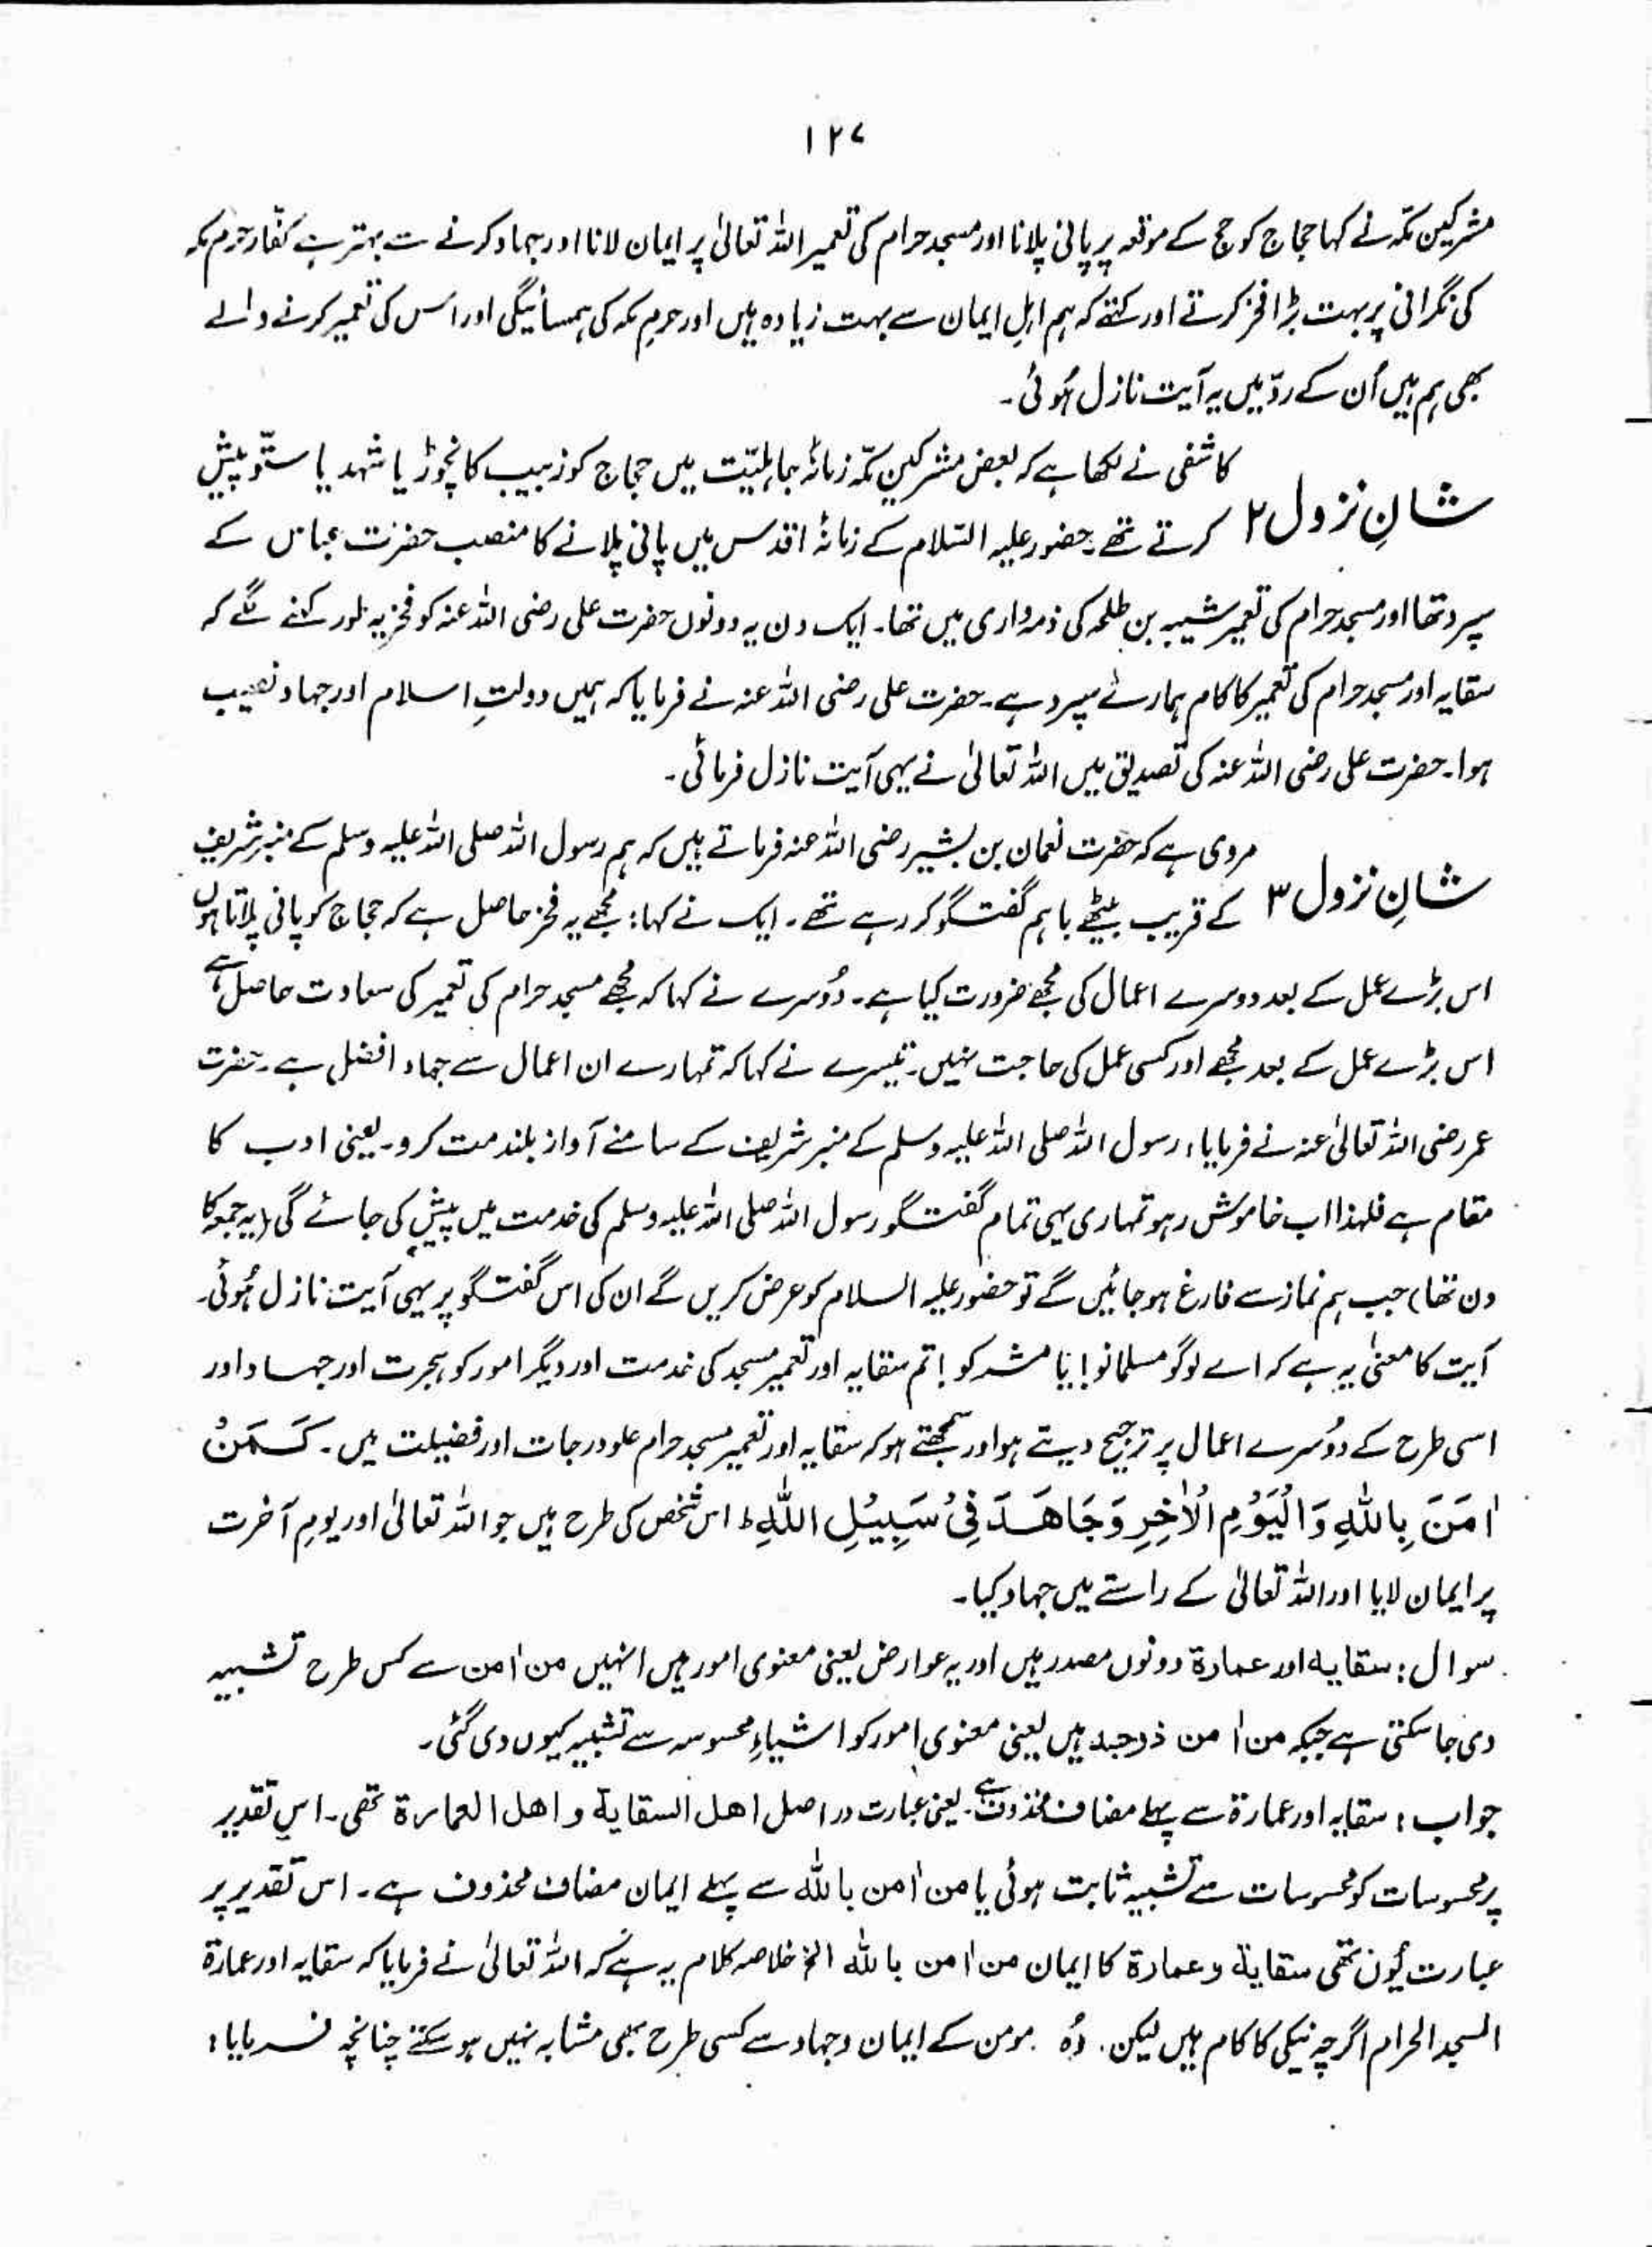 ١٢٧
مشرکین مکّہ نے کہا حجاج کو حج کے موقعہ پر پانی پلانا اور مسجد حرام کی تعمیر اللہ تعالیٰ پر ایمان لانا اور جہاد کرنے سے بہتر ہے کفّار حرم مکہ
کی نگرانی پر بہت بڑا فخر کرتے اور کہتے کہ ہم اہلِ ایمان سے بہت زیادہ ہیں اور حرمِ مکہ کی ہمسائیگی اور اس کی تعمیر کرنے والے
بھی ہم ہیں اُن کے ردّ میں یہ آیت نازل ہُوئی۔
شانِ نزول ۲ کاشفی نے لکھا ہے کہ بعض مشرکینِ مکّہ زمانۂ جاہلیّت میں حجاج کو زبیب کا نچوڑ یا شہد یا ستّو پیش
کرتے تھے۔ حضور علیہ السّلام کے زمانۂ اقدس میں پانی پلانے کا منصب حضرت عباس کے
سپرد تھا اور مسجد حرام کی تعمیر شیبہ بن طلحہ کی ذمہ داری میں تھا۔ ایک دن یہ دونوں حضرت علی رضی اللہ عنہ کو فخریہ طور کہنے لگے کہ
سقایہ اور مسجد حرام کی تعمیر کا کام ہمارے سپرد ہے۔ حضرت علی رضی اللہ عنہ نے فرمایا کہ ہمیں دولتِ اسلام اور جہاد نصیب
ہوا۔ حضرت علی رضی اللہ عنہ کی تصدیق میں اللہ تعالیٰ نے یہی آیت نازل فرمائی۔
شانِ نزول ۳ مروی ہے کہ حضرت نعمان بن بشیر رضی اللہ عنہ فرماتے ہیں کہ ہم رسول اللہ صلی اللہ علیہ وسلم کے منبر شریف
کے قریب بیٹھے باہم گفتگو کر رہے تھے۔ ایک نے کہا: مجھے یہ فخر حاصل ہے کہ حجاج کو پانی پلاتا ہوں
اس بڑے عمل کے بعد دوسرے اعمال کی مجھے ضرورت کیا ہے۔ دُوسرے نے کہا کہ مجھے مسجد حرام کی تعمیر کی سعادت حاصل ہے
اس بڑے عمل کے بعد مجھے اور کسی عمل کی حاجت نہیں۔ تیسرے نے کہا کہ تمہارے ان اعمال سے جہاد افضل ہے۔ حضرت
عمر رضی اللہ تعالیٰ عنہ نے فرمایا: رسول اللہ صلی اللہ علیہ وسلم کے منبر شریف کے سامنے آواز بلند مت کرو۔ یعنی ادب کا
مقام ہے فلہذا اب خاموش رہو تمہاری یہی تمام گفتگو رسول اللہ صلی اللہ علیہ وسلم کی خدمت میں پیش کی جائے گی (یہ جمعہ کا
دن تھا) جب ہم نماز سے فارغ ہو جائیں گے تو حضور علیہ السلام کو عرض کریں گے ان کی اس گفتگو پر یہی آیت نازل ہُوئی۔
آیت کا معنیٰ یہ ہے کہ اے لوگو مسلمانو! یا مشرکو! تم سقایہ اور تعمیر مسجد کی خدمت اور دیگر امور کو ہجرت اور جہاد اور
اسی طرح کے دُوسرے اعمال پر ترجیح دیتے ہو اور سمجھتے ہو کہ سقایہ اور تعمیر مسجد حرام علو درجات اور فضیلت میں۔ کَمَنْ
اٰمَنَ بِاللّٰهِ وَالْیَوْمِ الْاٰخِرِ وَجَاهَدَ فِیْ سَبِیْلِ اللّٰهِ ط اس شخص کی طرح ہیں جو اللہ تعالیٰ اور یومِ آخرت
پر ایمان لایا اور اللہ تعالیٰ کے راستے میں جہاد کیا۔
سوال: سقایه اور عمارة دونوں مصدر ہیں اور یہ عوارض یعنی معنوی امور ہیں انہیں من اٰمن سے کس طرح تشبیہ
دی جا سکتی ہے جبکہ من اٰمن ذوجسد ہیں یعنی معنوی امور کو اشیاءِ محسوسہ سے تشبیہ کیوں دی گئی۔
جواب: سقایہ اور عمارۃ سے پہلے مضاف محذوف ہے۔ یعنی عبارت در اصل اهل السقایة و اهل العمارة تھی۔ اس تقدیر
پر محسوسات کو محسوسات سے تشبیہ ثابت ہوئی یا من اٰمن باللّٰه سے پہلے ایمان مضاف محذوف ہے۔ اس تقدیر پر
عبارت یُوں تھی سقایة و عمارة کا ایمان من اٰمن باللّٰه الخ خلاصہ کلام یہ ہے کہ اللہ تعالیٰ نے فرمایا کہ سقایہ اور عمارۃ
المسجد الحرام اگرچہ نیکی کا کام ہیں لیکن وُہ مومن کے ایمان و جہاد سے کسی طرح بھی مشابہ نہیں ہو سکتے چنانچہ فرمایا: